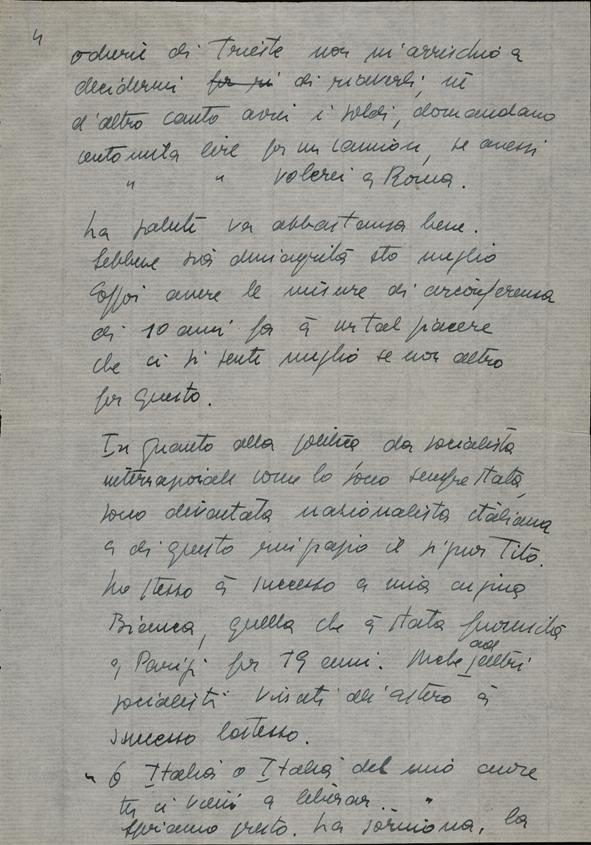 4
odierne di Trieste non m'arrischio a
decidermi di riaverli, nè
d'altro canto avrei i soldi, domandano
centomila lire for un camion, se avessi
" " volerci a Roma.
La salute va abbastanza bene.
Sebbene sia dimagrita sto meglio
Eppoi avere le misure di circonferenza
di 10 anni fa à un tal piacere
che ci si sente meglio se non altro
for questo.
In quanto alla politica da socialista
internazionale come lo sono sempre stata,
sono diventata nazionalista italiana
e di questo ringrazio il signor Tito.
Lo stesso à successo a mia cugina
Bianca, quella che à stata
a Parigi for 19 anni. Anche ad altri
socialisti vissuti all'estero à
successo lostesso.
" O Italia o Italia del mio cuore
tu ci vieni a liberar... "
Speriamo presto. La, la